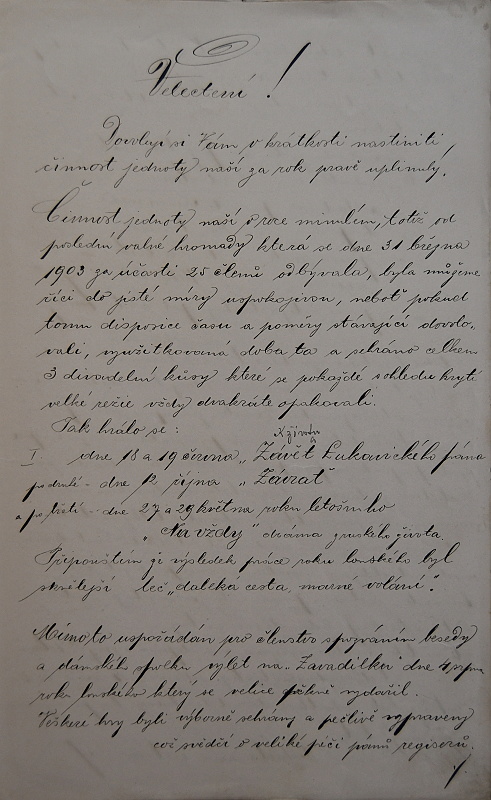 Velectění!
Dovoluji si Vám v krátkosti nastíniti
činnost jednoty naší za rok právě uplinulý.
Činnost jednoty naší v roce minulém, totiž od
poslední valné hromady která se dne 31 března
1903 za účasti 25 členů odbývala, byla můžeme
říci do jisté míry uspokojivou, neboť pokud
tomu disposice času a poměry stávající dovolo-
vali, využitkovaná doba ta a sehráno celkem
3 divadelní kusy které se pokaždé vohledu kryté
velké režie vždy dvakráte opakovali.
Tak hrálo se:
I dne 18 a 19 června „Závěť Lukavického pána
podruhé - dne 12 října „Závrať"
a po třetí - dne 27 a 29 května roku letošního
„Na vždy" dráma z ruského života.
Připouštím že výsledek práce roku lonského byl
skvělejší leč „daleká cesta, marné volání".
Mimo to uspořádán pro členstvo s pozváním besedy
a dámského spolku výlet na „Zavadilku" dne 4 srpna
roku lonského který se velice pěkně vydařil.
Veškeré hry byli výborně sehrány a pečlivě vypraveny
což svědčí o veliké péči pánů regiserů.